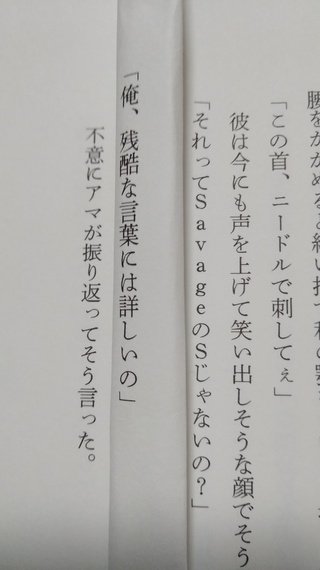 「この首、ニードルで刺してぇ」
彼は今にも声を上げて笑い出しそうな顔でそう
「それってSavageのSじゃないの？」
「俺、残酷な言葉には詳しいの」
不意にアマが振り返ってそう言った。